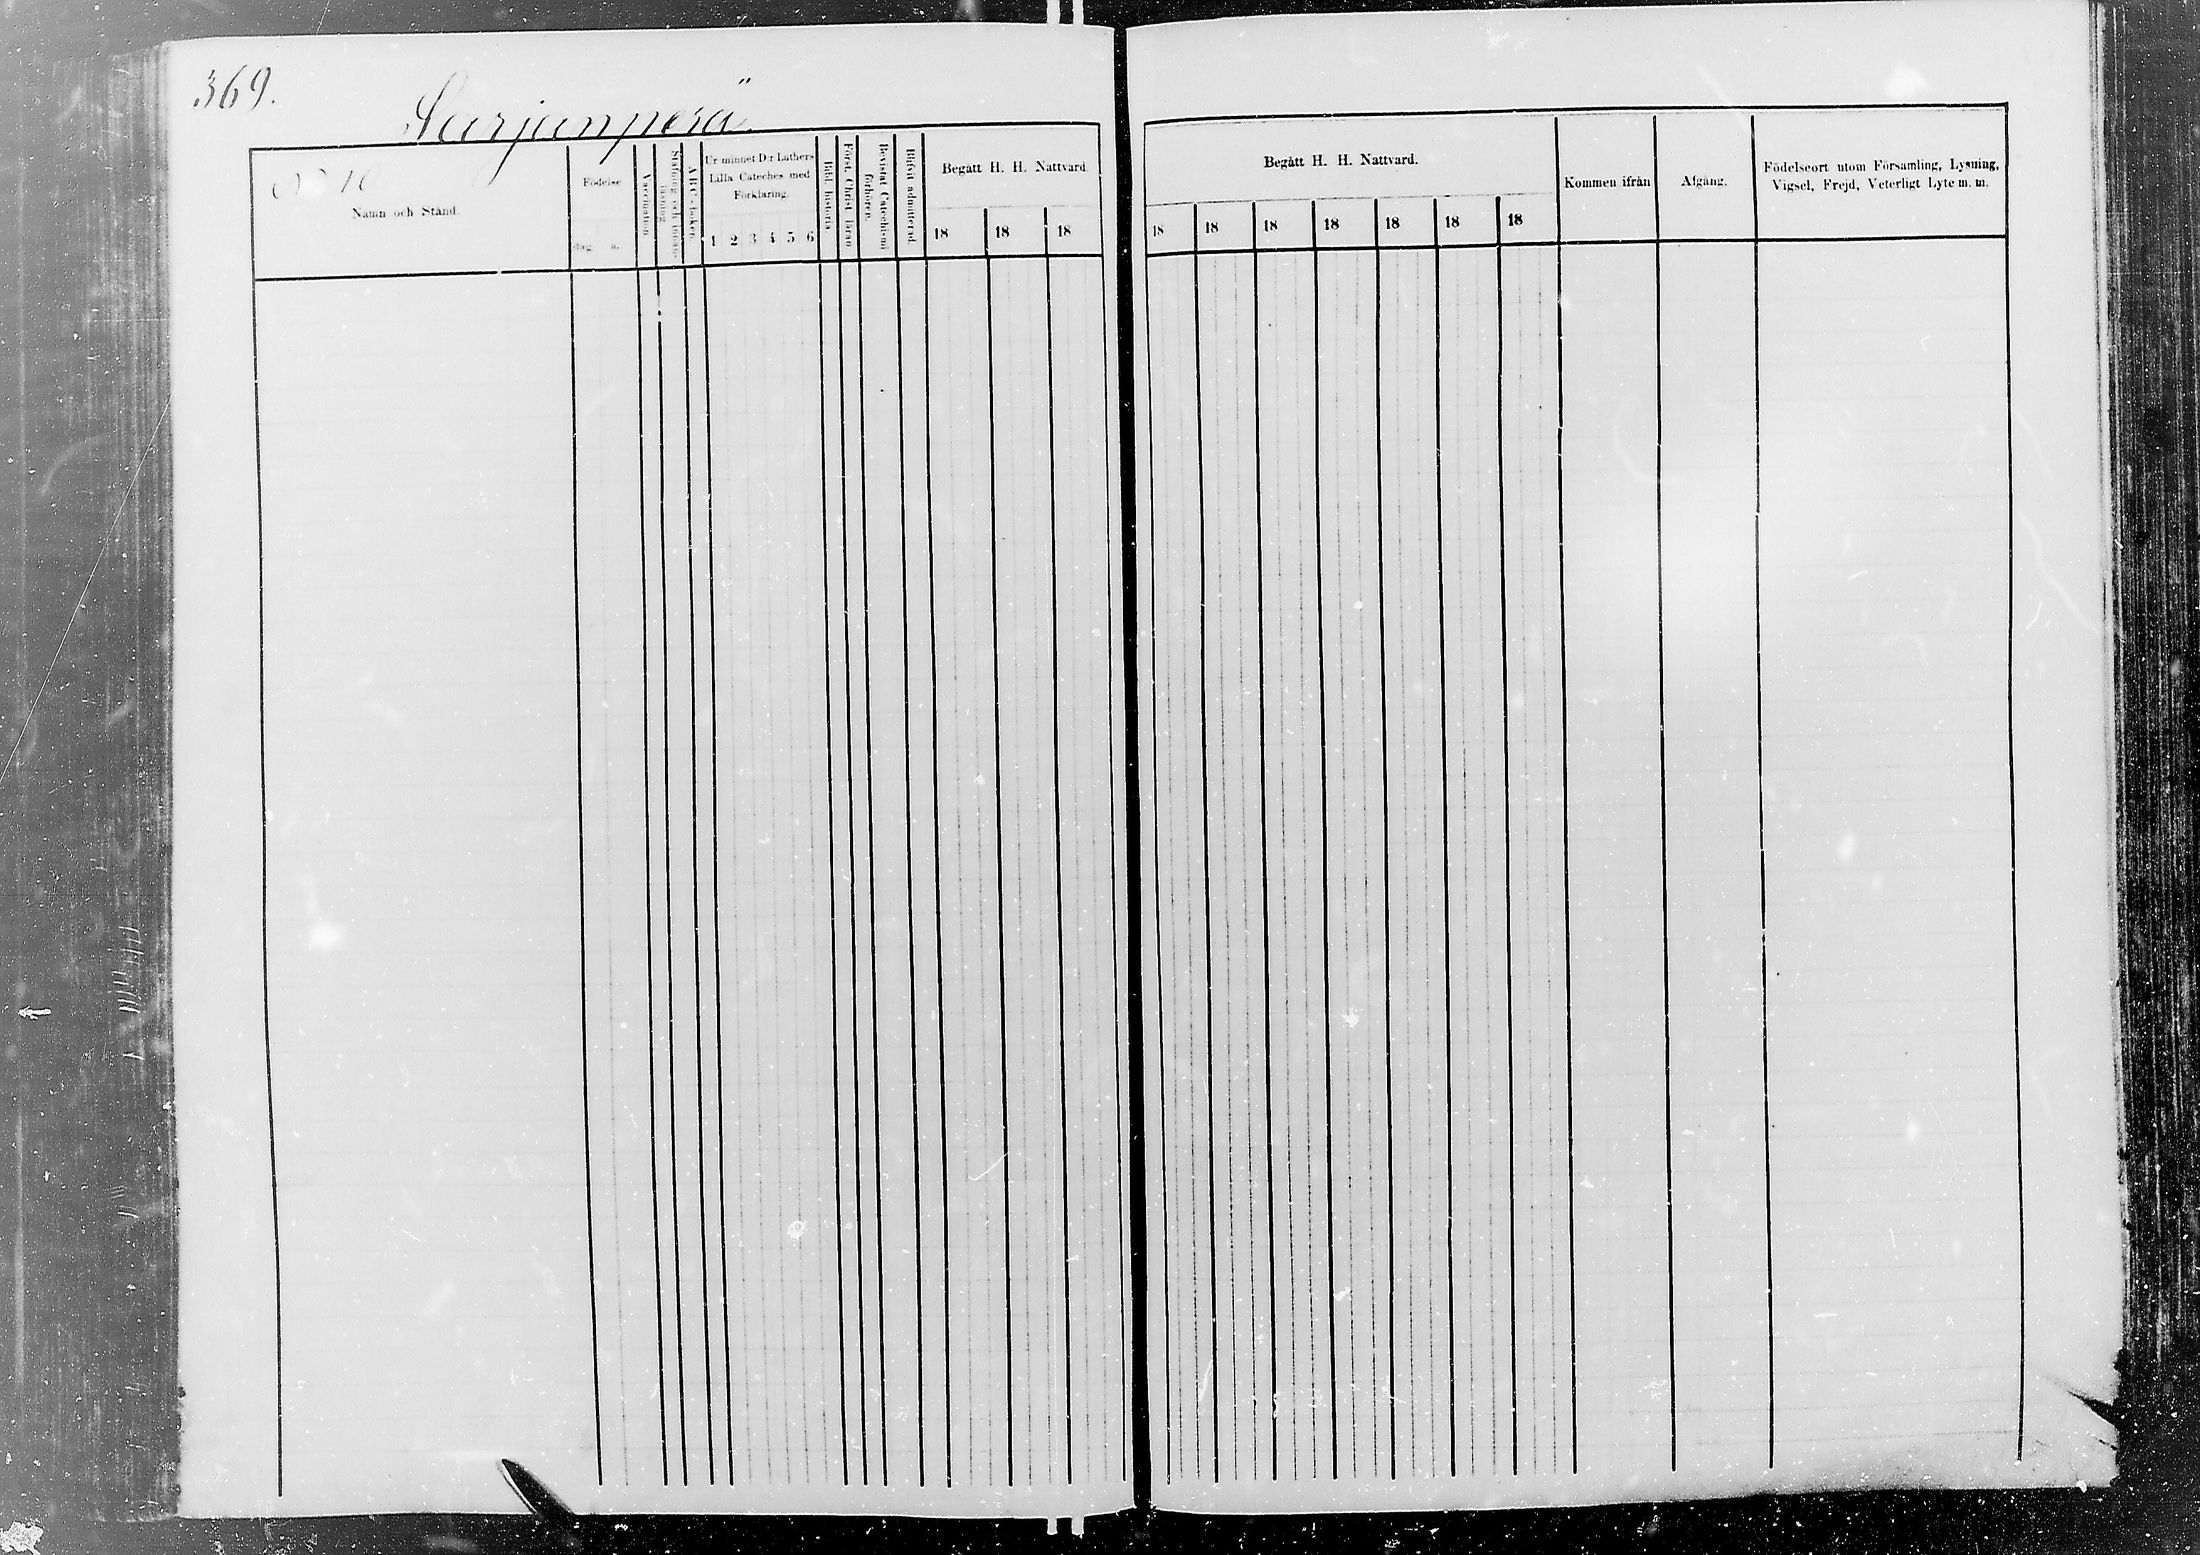 369.
Sarjanperä
No 10
Namn och Stånd.
Födelse
dag. a.
Vaccination.
Stafning och innan-
läsning
ABC-boken.
Ur minnet D:r Luthers
Lilla Cateches med
Förklaring.
1 2 3 4 5 6
Bibl. historia
Först. Christ. läran
Bevistat Catechismi
förhören.
Blifvit admitterad.
Begått H. H. Nattvard.
18 18 18
Begått H. H. Nattvard.
18 18 18 18 18 18 18
Kommen ifrån
Afgång.
Födelseort utom Församling, Lysning,
Vigsel, Frejd, Veterligt Lyte m. m.